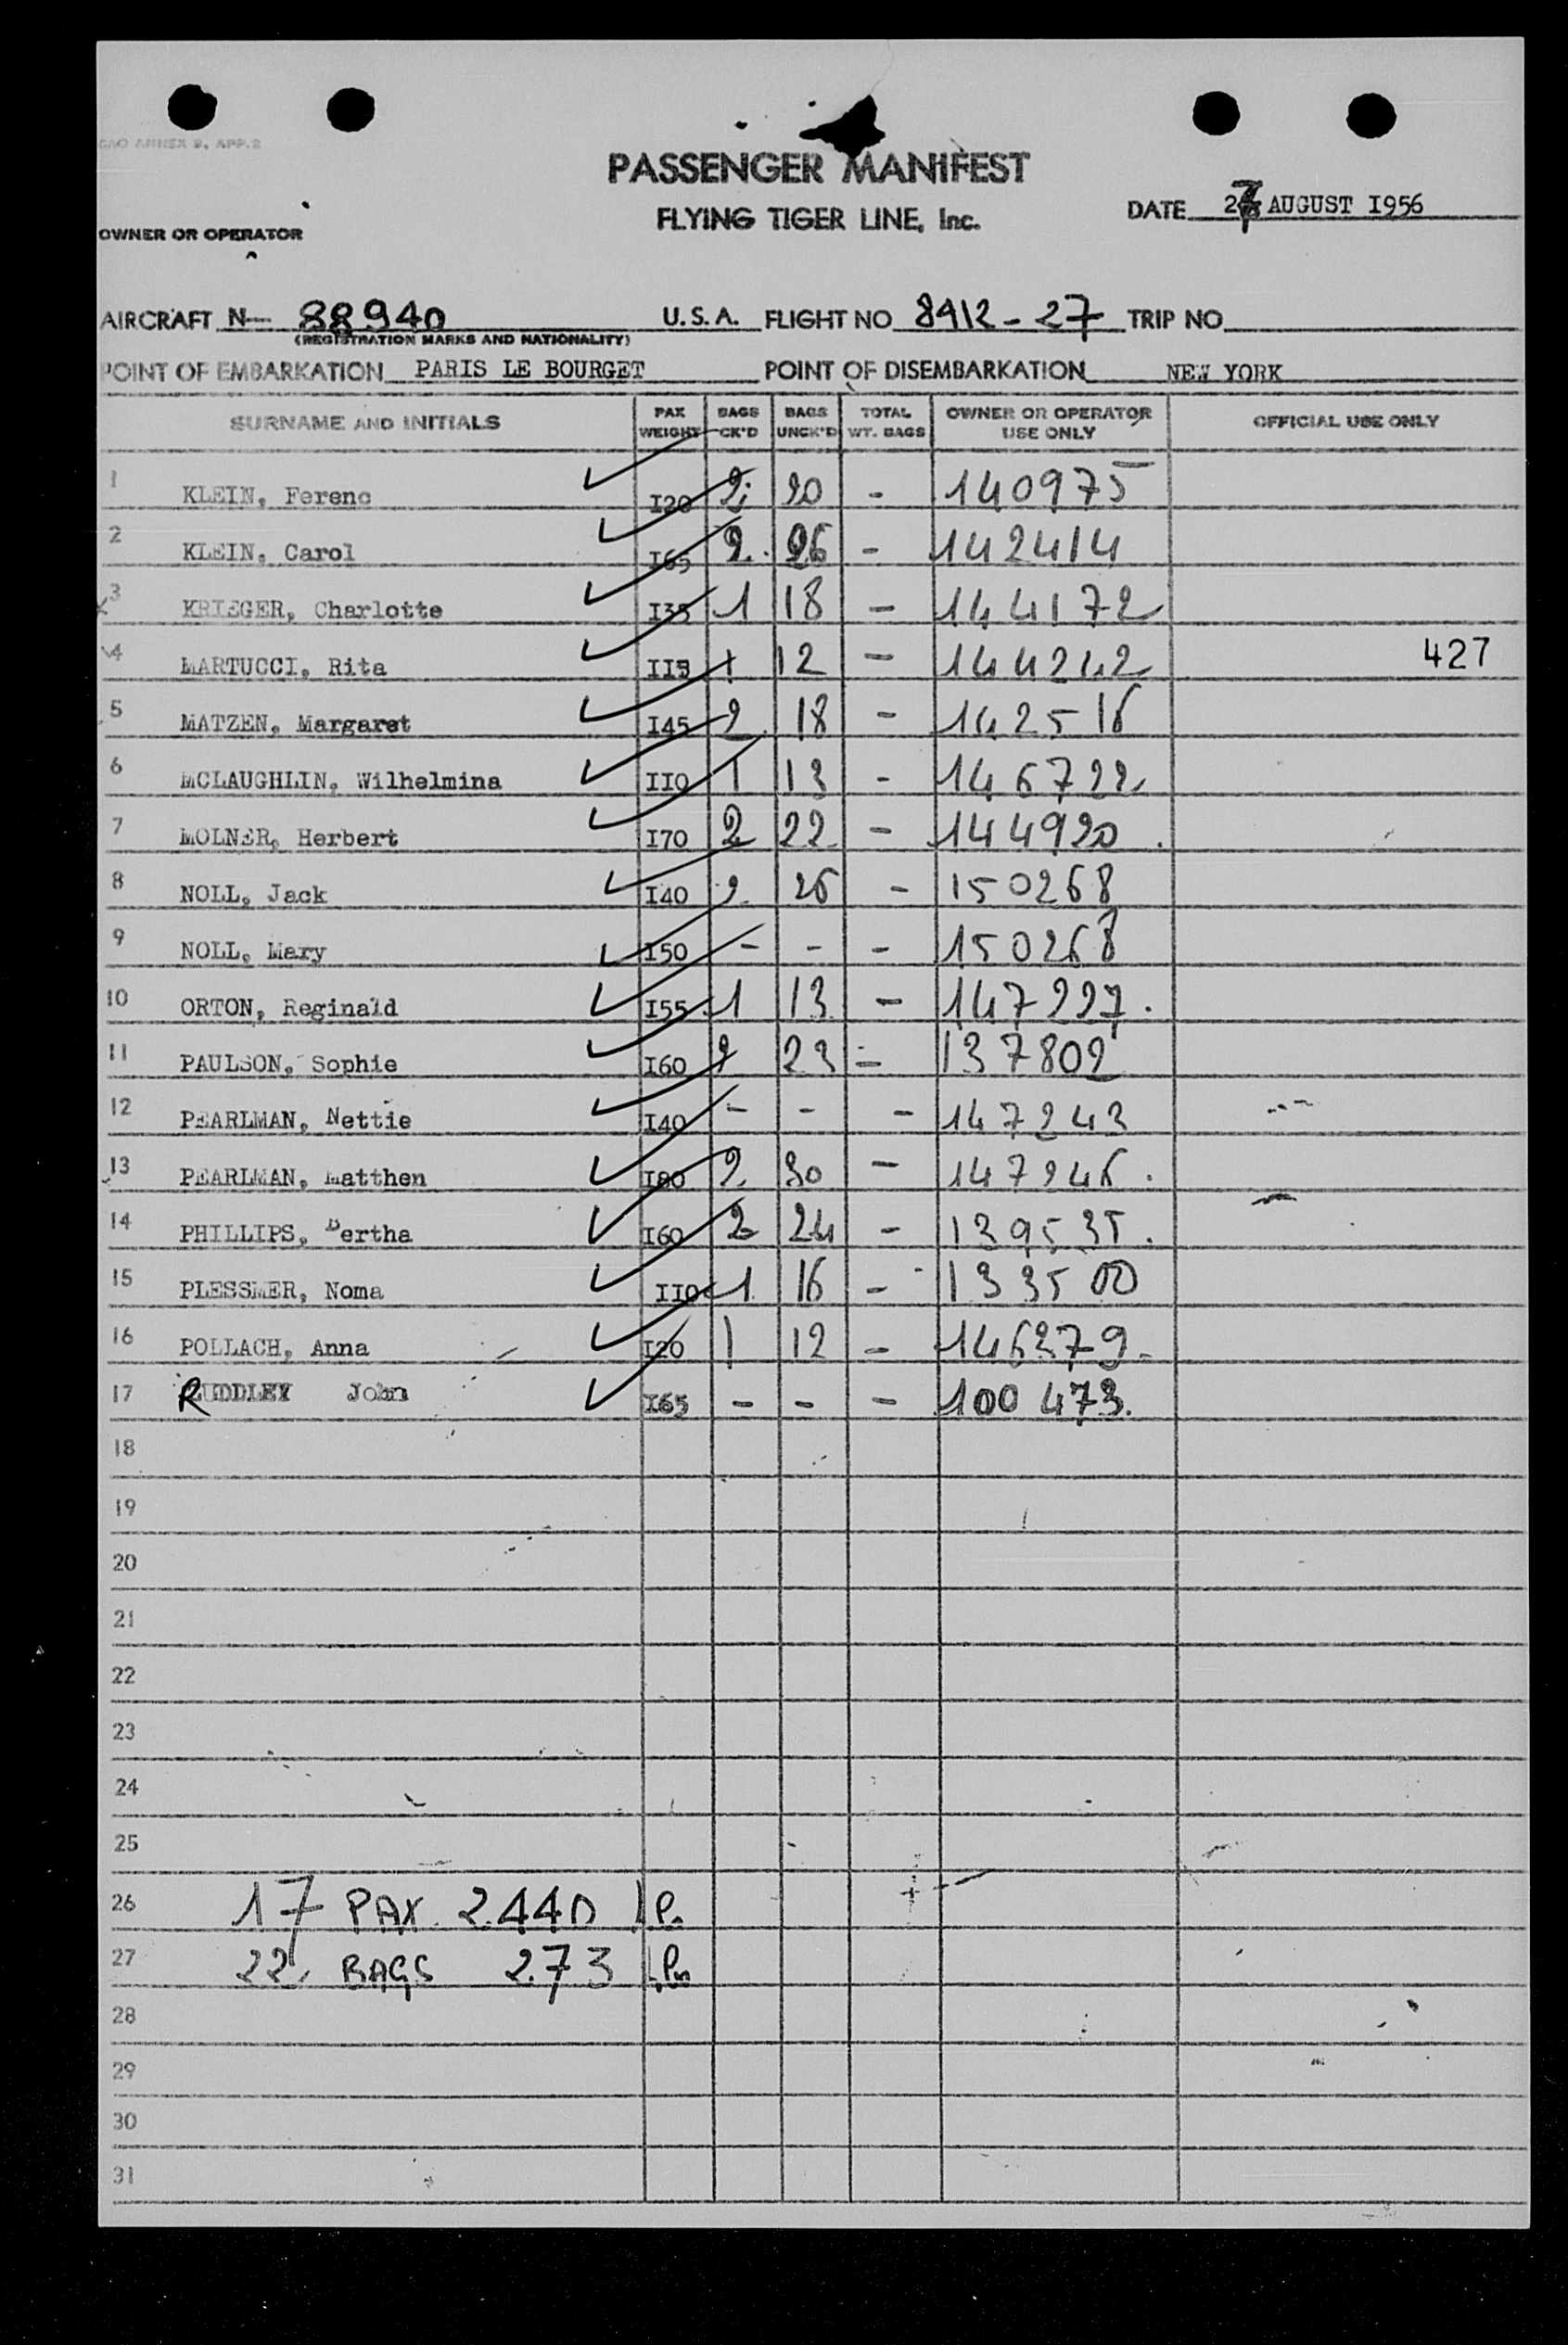 PASSENGER MANIFEST
FLYING TIGER LINE, Inc.
DATE 27 AUGUST I956
OWNER OR OPERATOR
AIRCRAFT N— 88940 U.S.A. FLIGHT NO 8412-27 TRIP NO
(REGISTRATION MARKS AND NATIONALITY)
POINT OF EMBARKATION PARIS LE BOURGET POINT OF DISEMBARKATION NEW YORK
SURNAME AND INITIALS PAX WEIGHT BAGS CK'D BAGS UNCK'D TOTAL WT. BAGS OWNER OR OPERATOR USE ONLY OFFICIAL USE ONLY
1 KLEIN, Ferenc I20 2 20 - 140975
2 KLEIN, Carol I65 2 26 - 142414
3 KRIEGER, Charlotte I35 1 18 - 144172
4 MARTUCCI, Rita II5 1 12 - 144242 427
5 MATZEN, Margaret I45 2 18 - 142516
6 MCLAUGHLIN, Wilhelmina II0 1 13 - 146722
7 MOLNER, Herbert I70 2 22 - 144920
8 NOLL, Jack I40 2 26 - 150268
9 NOLL, Mary I50 - - - 150268
10 ORTON, Reginald I55 1 13 - 147227
11 PAULSON, Sophie I60 2 23 - 137802
12 PEARLMAN, Nettie I40 - - - 147243
13 PEARLMAN, Matthen I80 2 30 - 147246
14 PHILLIPS, Bertha I60 2 24 - 139535
15 PLESSMER, Noma II0 1 16 - 133500
16 POLLACH, Anna I20 1 12 - 146279
17 RUDDLEY John I65 - - - 100473
18
19
20
21
22
23
24
25
26 17 PAX 2440
27 22 BAGS 273
28
29
30
31